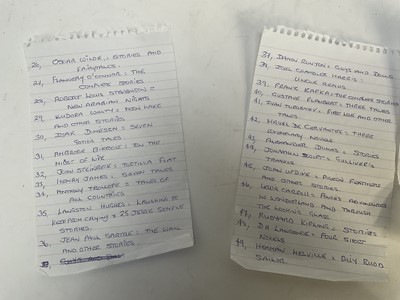 26, Oscar Wilde: Stories and
Fairytales.
27, Flannery O'Connor: The
Complete Stories
28, Robert Louis Stevenson:
New Arabian Nights
29, Eudora Welty: Moon Lake
and other stories
30, Isak Dinesen: Seven
Gothic Tales.
31, Ambrose Bierce: In the
Midst of Life
32, John Steinbeck: Tortilla Flat
33, Henry James: Seven Tales
34, Anthony Trollope: Tales of
all countries
35, Langston Hughes: Laughing to
Keep from Crying: 25 Jesse Semple
Stories.
36, Jean Paul Sartre: The Wall
and other stories
37, Damon Runyon: Guys and Dolls
38, Joel Chandler Harris:
Uncle Remus.
39, Franz Kafka: The Complete Stories
40, Gustave Flaubert: Three Tales
41, Ivan Turgenev: First Love and other
Tales.
42, Miguel De Cervantes: Three
Exemplary Novels
43, Alexander Dumas: Stories
44, Jonathan Swift: Gulliver's
Travels.
45, John Updike: Pigeon Feathers
and other stories
46, Lewis Carroll: Alice's Adventures
in Wonderland and Through
the Looking Glass
47, Rudyard Kipling: Stories
48, DH Lawrence: Four Short
Novels
49, Herman Melville: Billy Budd
Sailor.